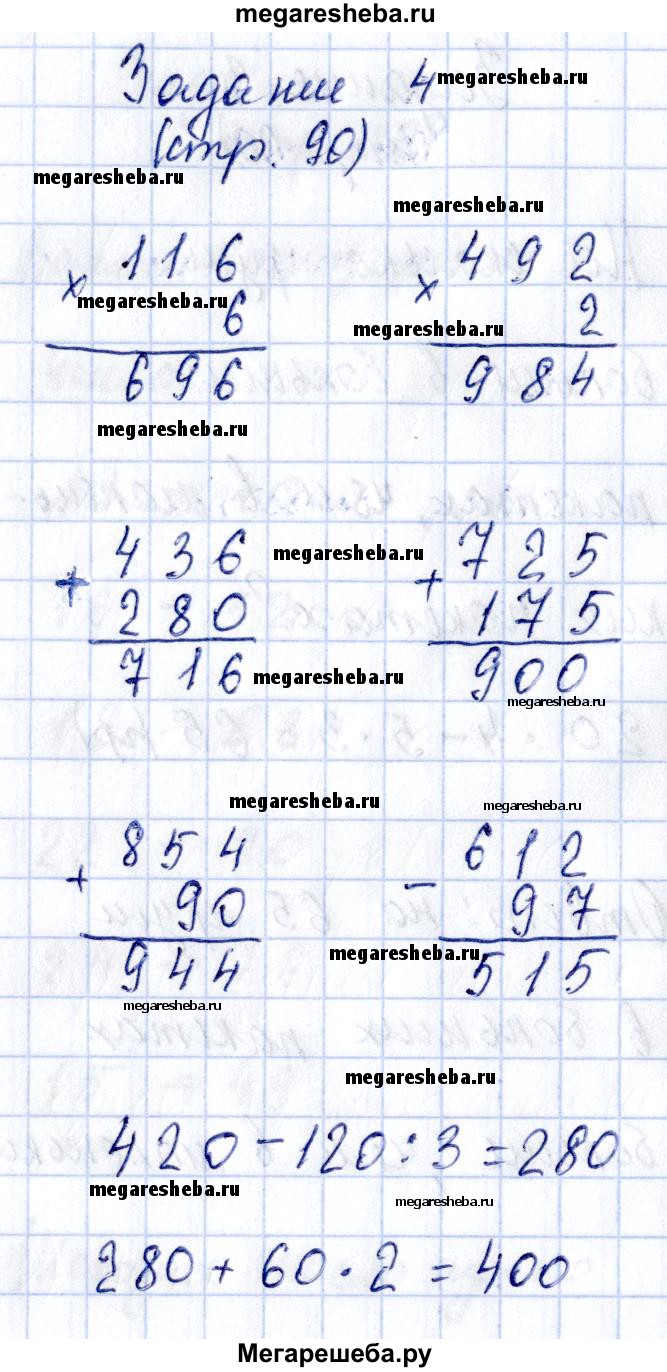 megaresheba.ru
Задание 4 megaresheba.ru
(стр. 90)
megaresheba.ru
megaresheba.ru
116 × 492
× megaresheba.ru
6 megaresheba.ru 2
696 984
megaresheba.ru
436 megaresheba.ru 725
+ +
280 175
716 megaresheba.ru 900
megaresheba.ru
megaresheba.ru megaresheba.ru
854 612
+ -
90 97
megaresheba.ru
944 515
megaresheba.ru
megaresheba.ru
420 - 120 : 3 = 280
megaresheba.ru megaresheba.ru
280 + 60 · 2 = 400
Мегарешеба.ру